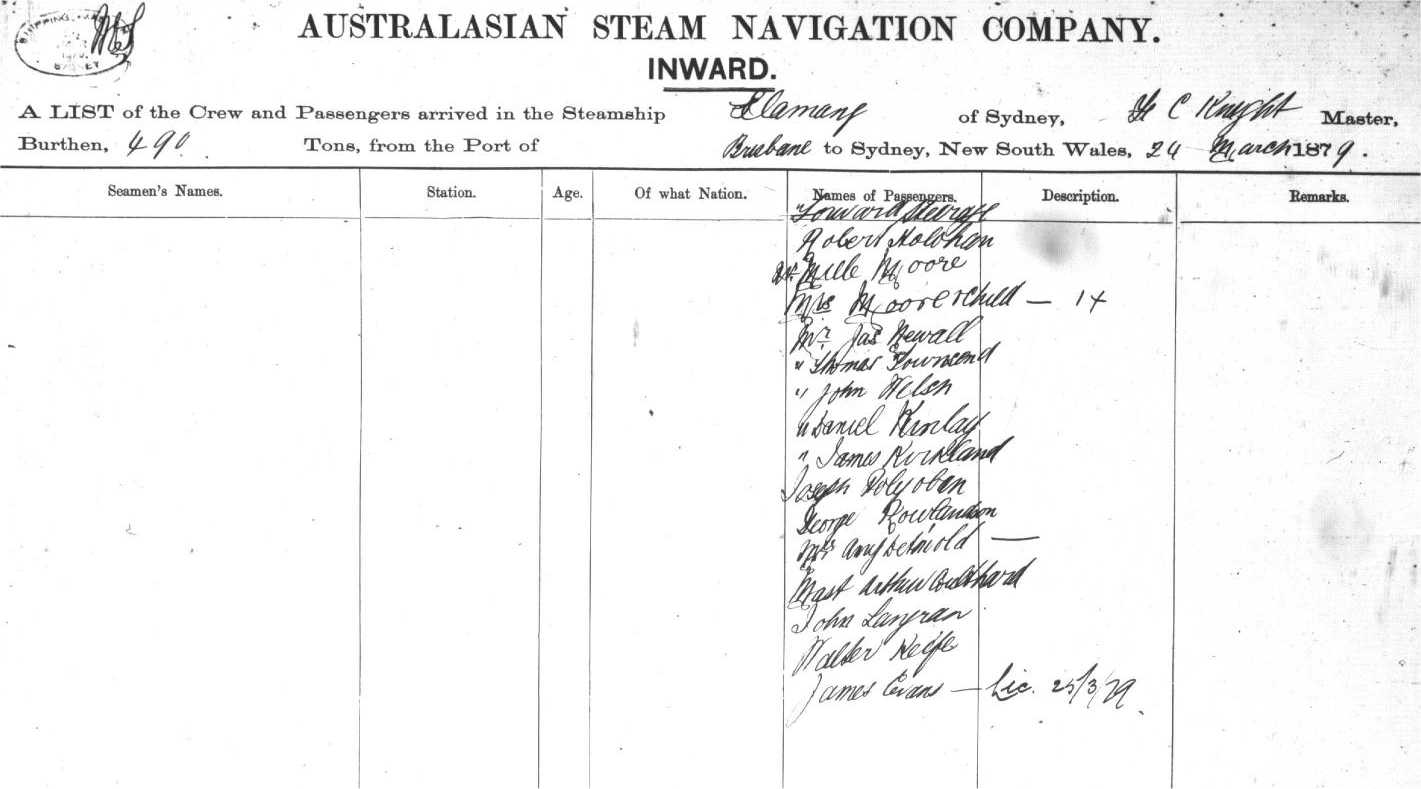 SHIPPING SYDNEY
AUSTRALASIAN STEAM NAVIGATION COMPANY.
INWARD.
A LIST of the Crew and Passengers arrived in the Steamship Elamang of Sydney, H C Knight Master,
Burthen, 490 Tons, from the Port of Brisbane to Sydney, New South Wales, 24 March 1879.
Seamen's Names. Station. Age. Of what Nation. Names of Passengers. Description. Remarks.
" George
Robert Holohan
Moore
Mrs Moore & Child — 1 +
Mr Jas Newall
" Thomas Townsend
" John Welsh
" Daniel Kinlay
" James Kirkland
Joseph
George Rowlandson
Mrs Amy Detmold —
Mast Arthur Coulthard
John Langran
Walter Keife
James Evans — Lic. 25/3/79.